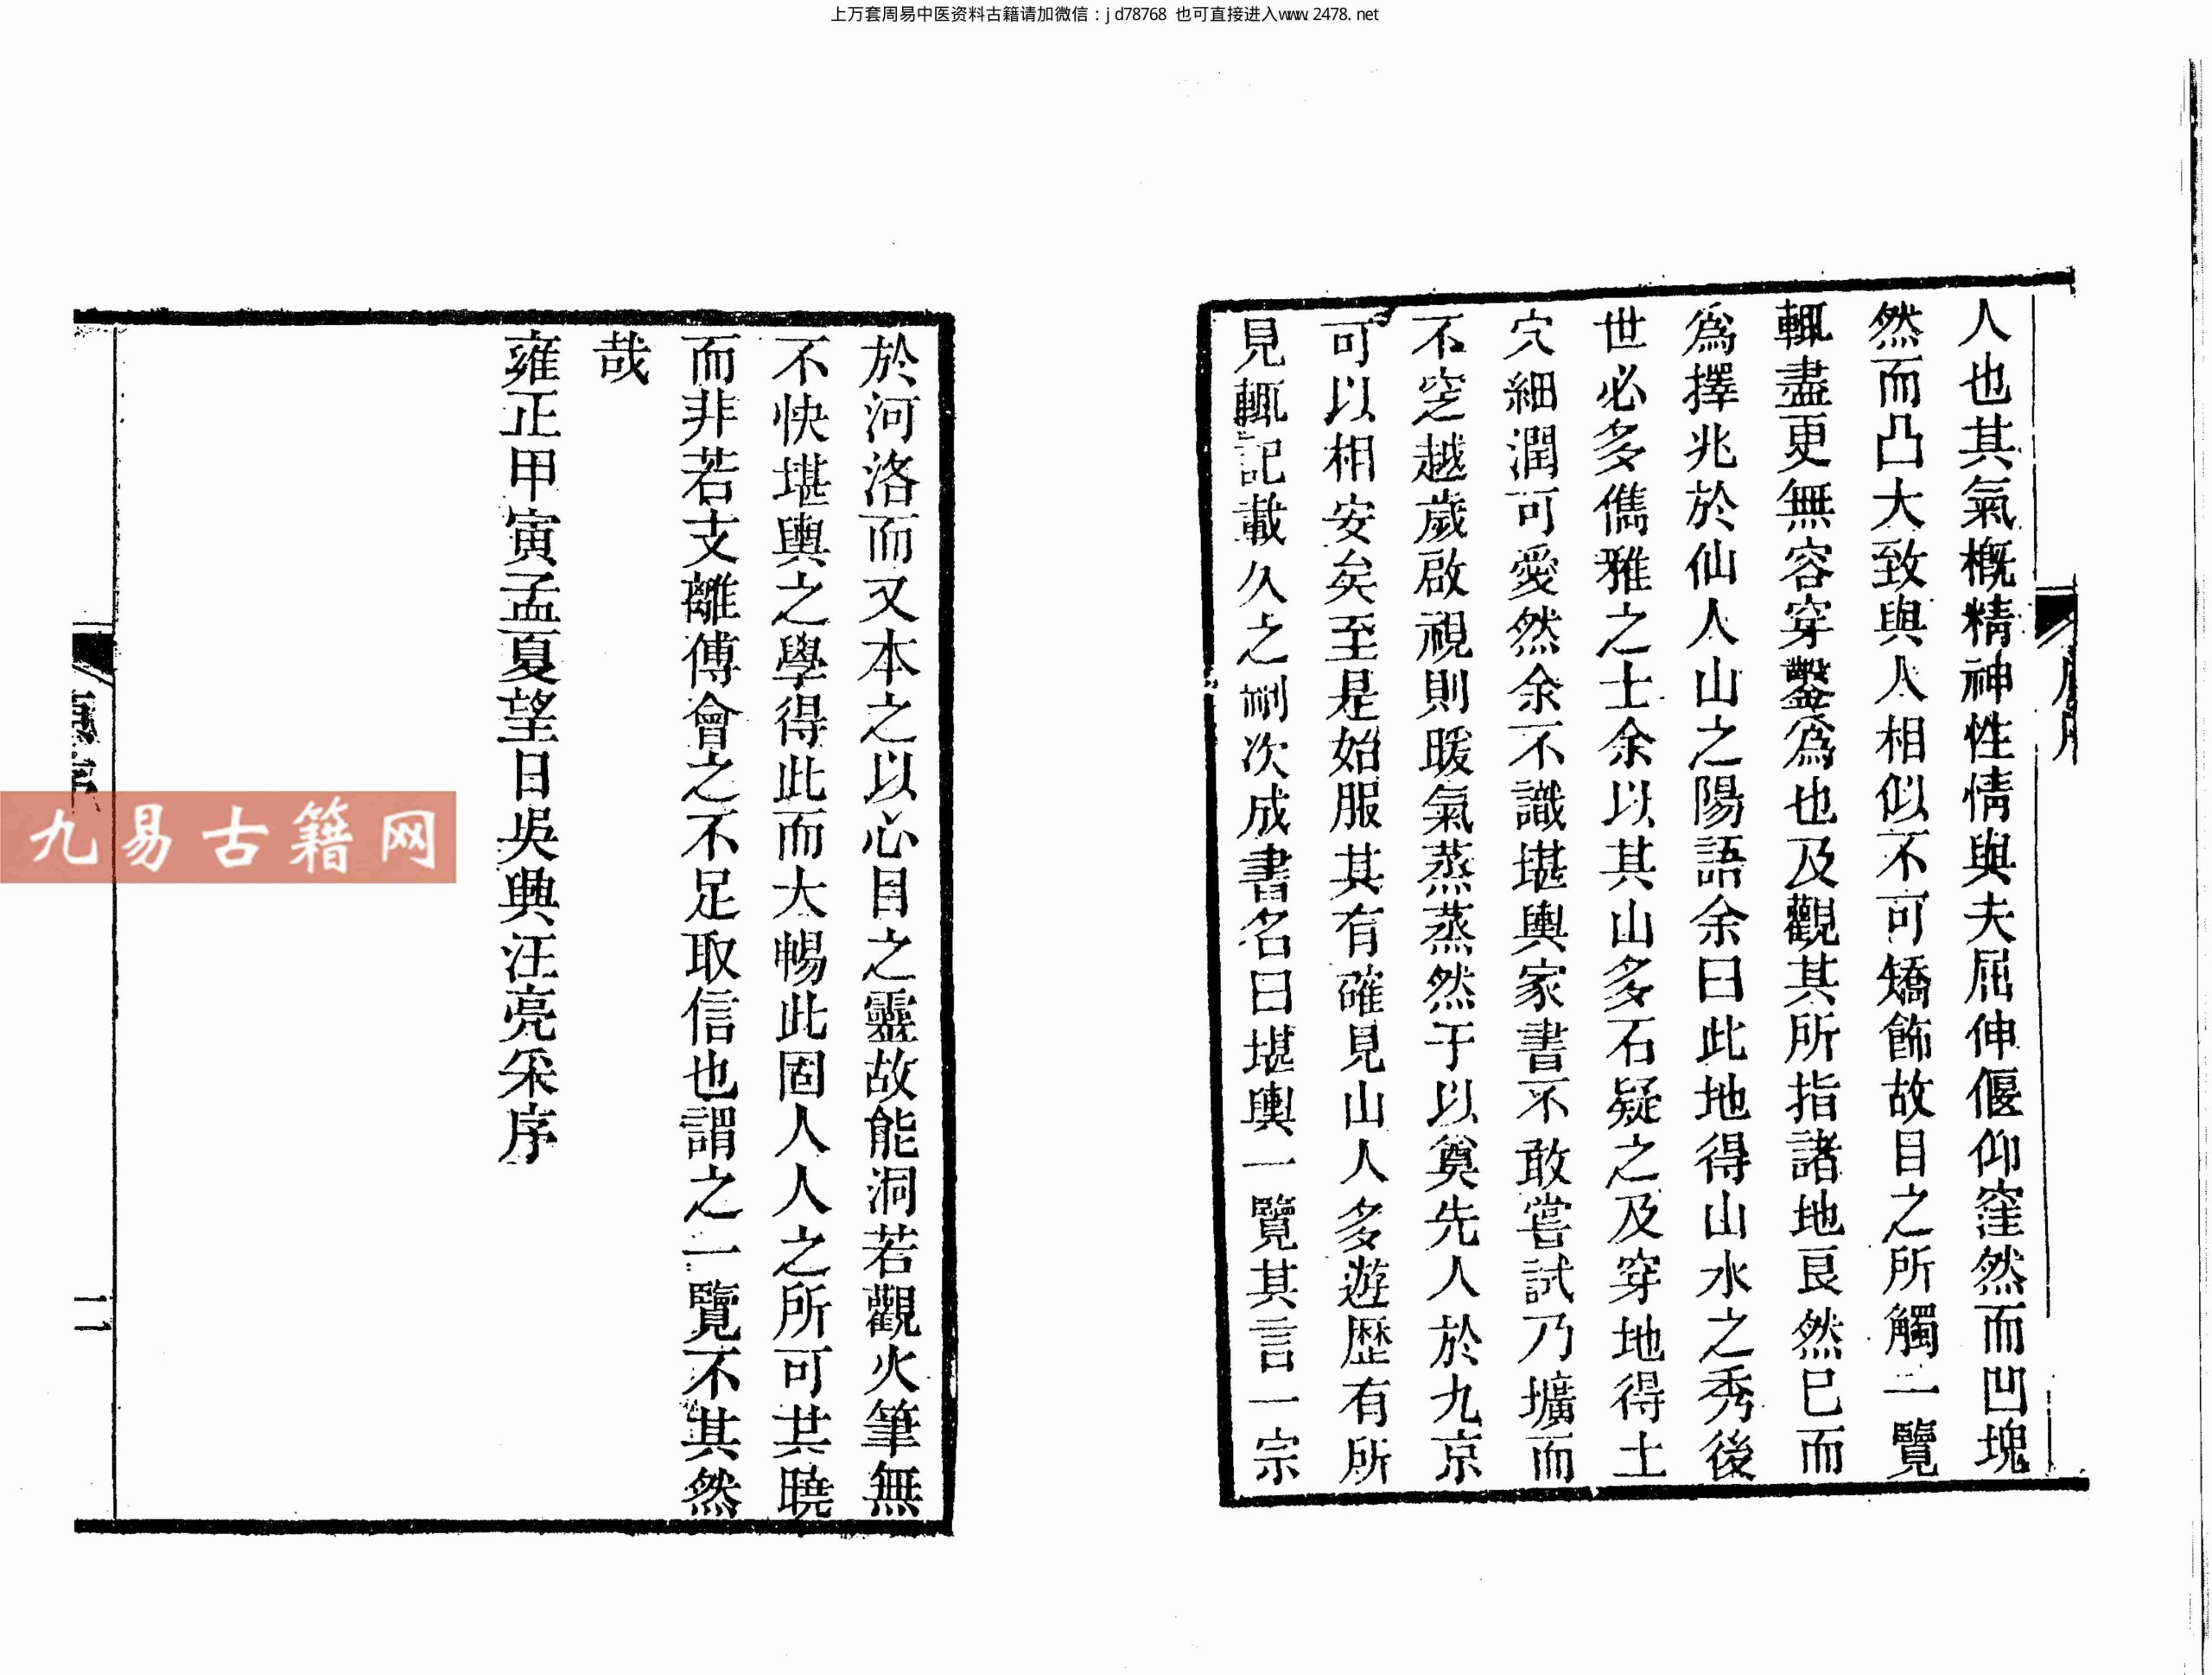 上万套周易中医资料古籍请加微信：jd78768 也可直接进入www.2478.net
人也其氣概精神性情與夫屈伸偃仰窪然而凹塊
然而凸大致與人相似不可矯飾故目之所觸一覽
輒盡更無容穿鑿爲也及觀其所指諸地良然已而
爲擇兆於仙人山之陽語余曰此地得山水之秀後
世必多儁雅之士余以其山多石疑之及穿地得土
穴細潤可愛然余不識堪輿家書不敢嘗試乃壙而
不窆越歲啟視則暖氣蒸蒸然于以奠先人於九京
可以相安矣至是始服其有確見山人多遊歷有所
見輒記載久之刪次成書名曰堪輿一覽其言一宗
於河洛而又本之以心目之靈故能洞若觀火筆無
不快堪輿之學得此而大暢此固人人之所可共曉
而非若支離傅會之不足取信也謂之一覽不其然
哉
雍正甲寅孟夏望日吳興汪亮采序
二
九易古籍网